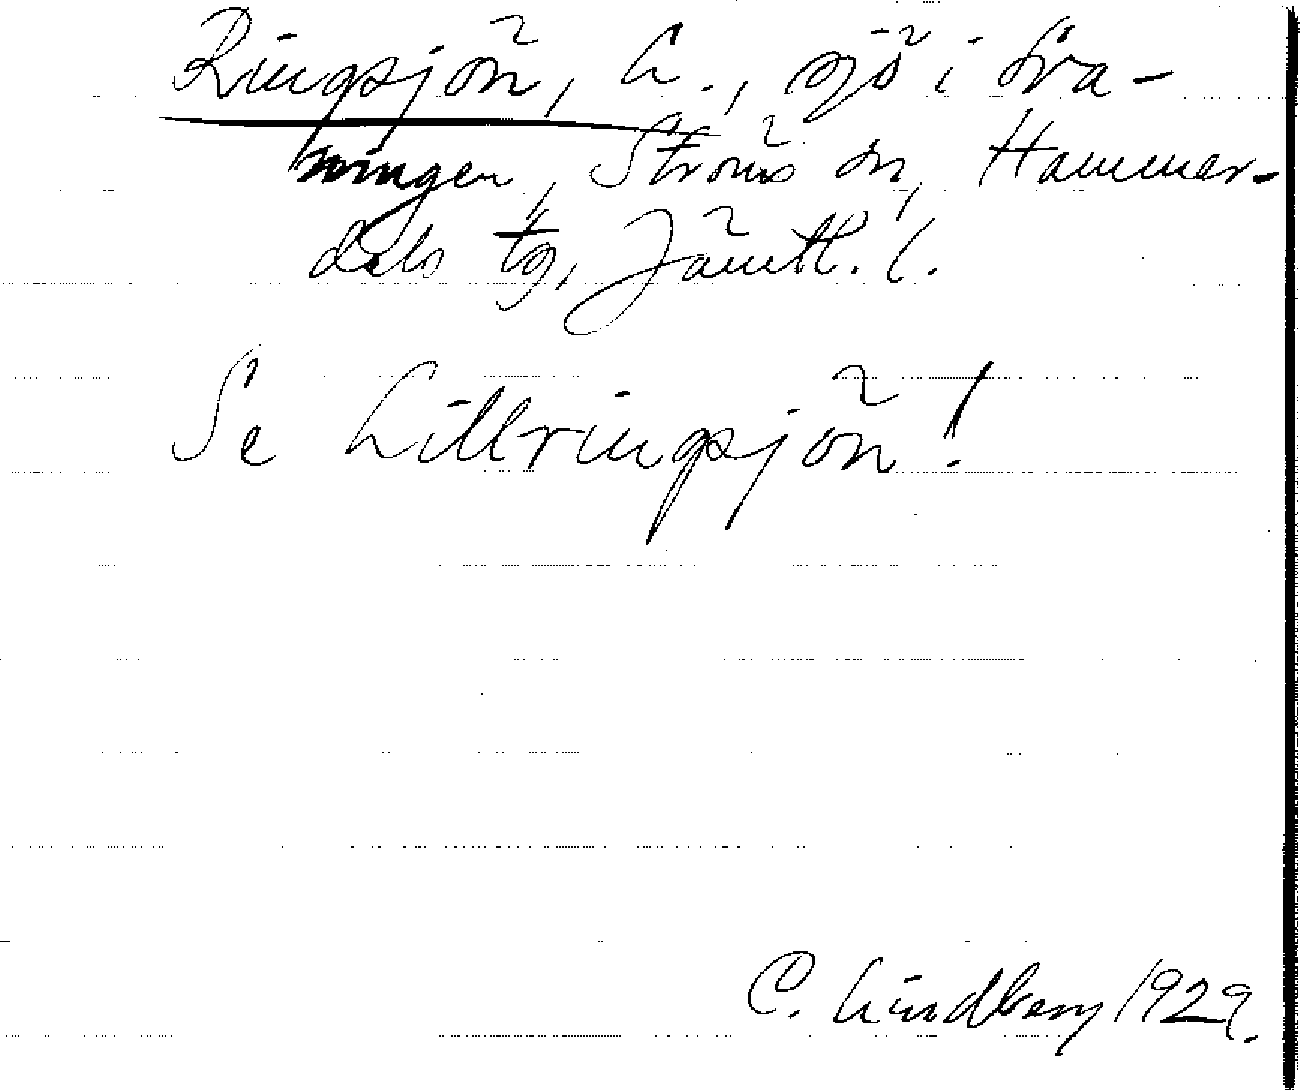 Ringsjön, L., sjö i Sva-
ningen, Ströms sn, Hammer-
dals tg, Jämtl. l.
Se Lillringsjön!
C. Lindberg 1929.